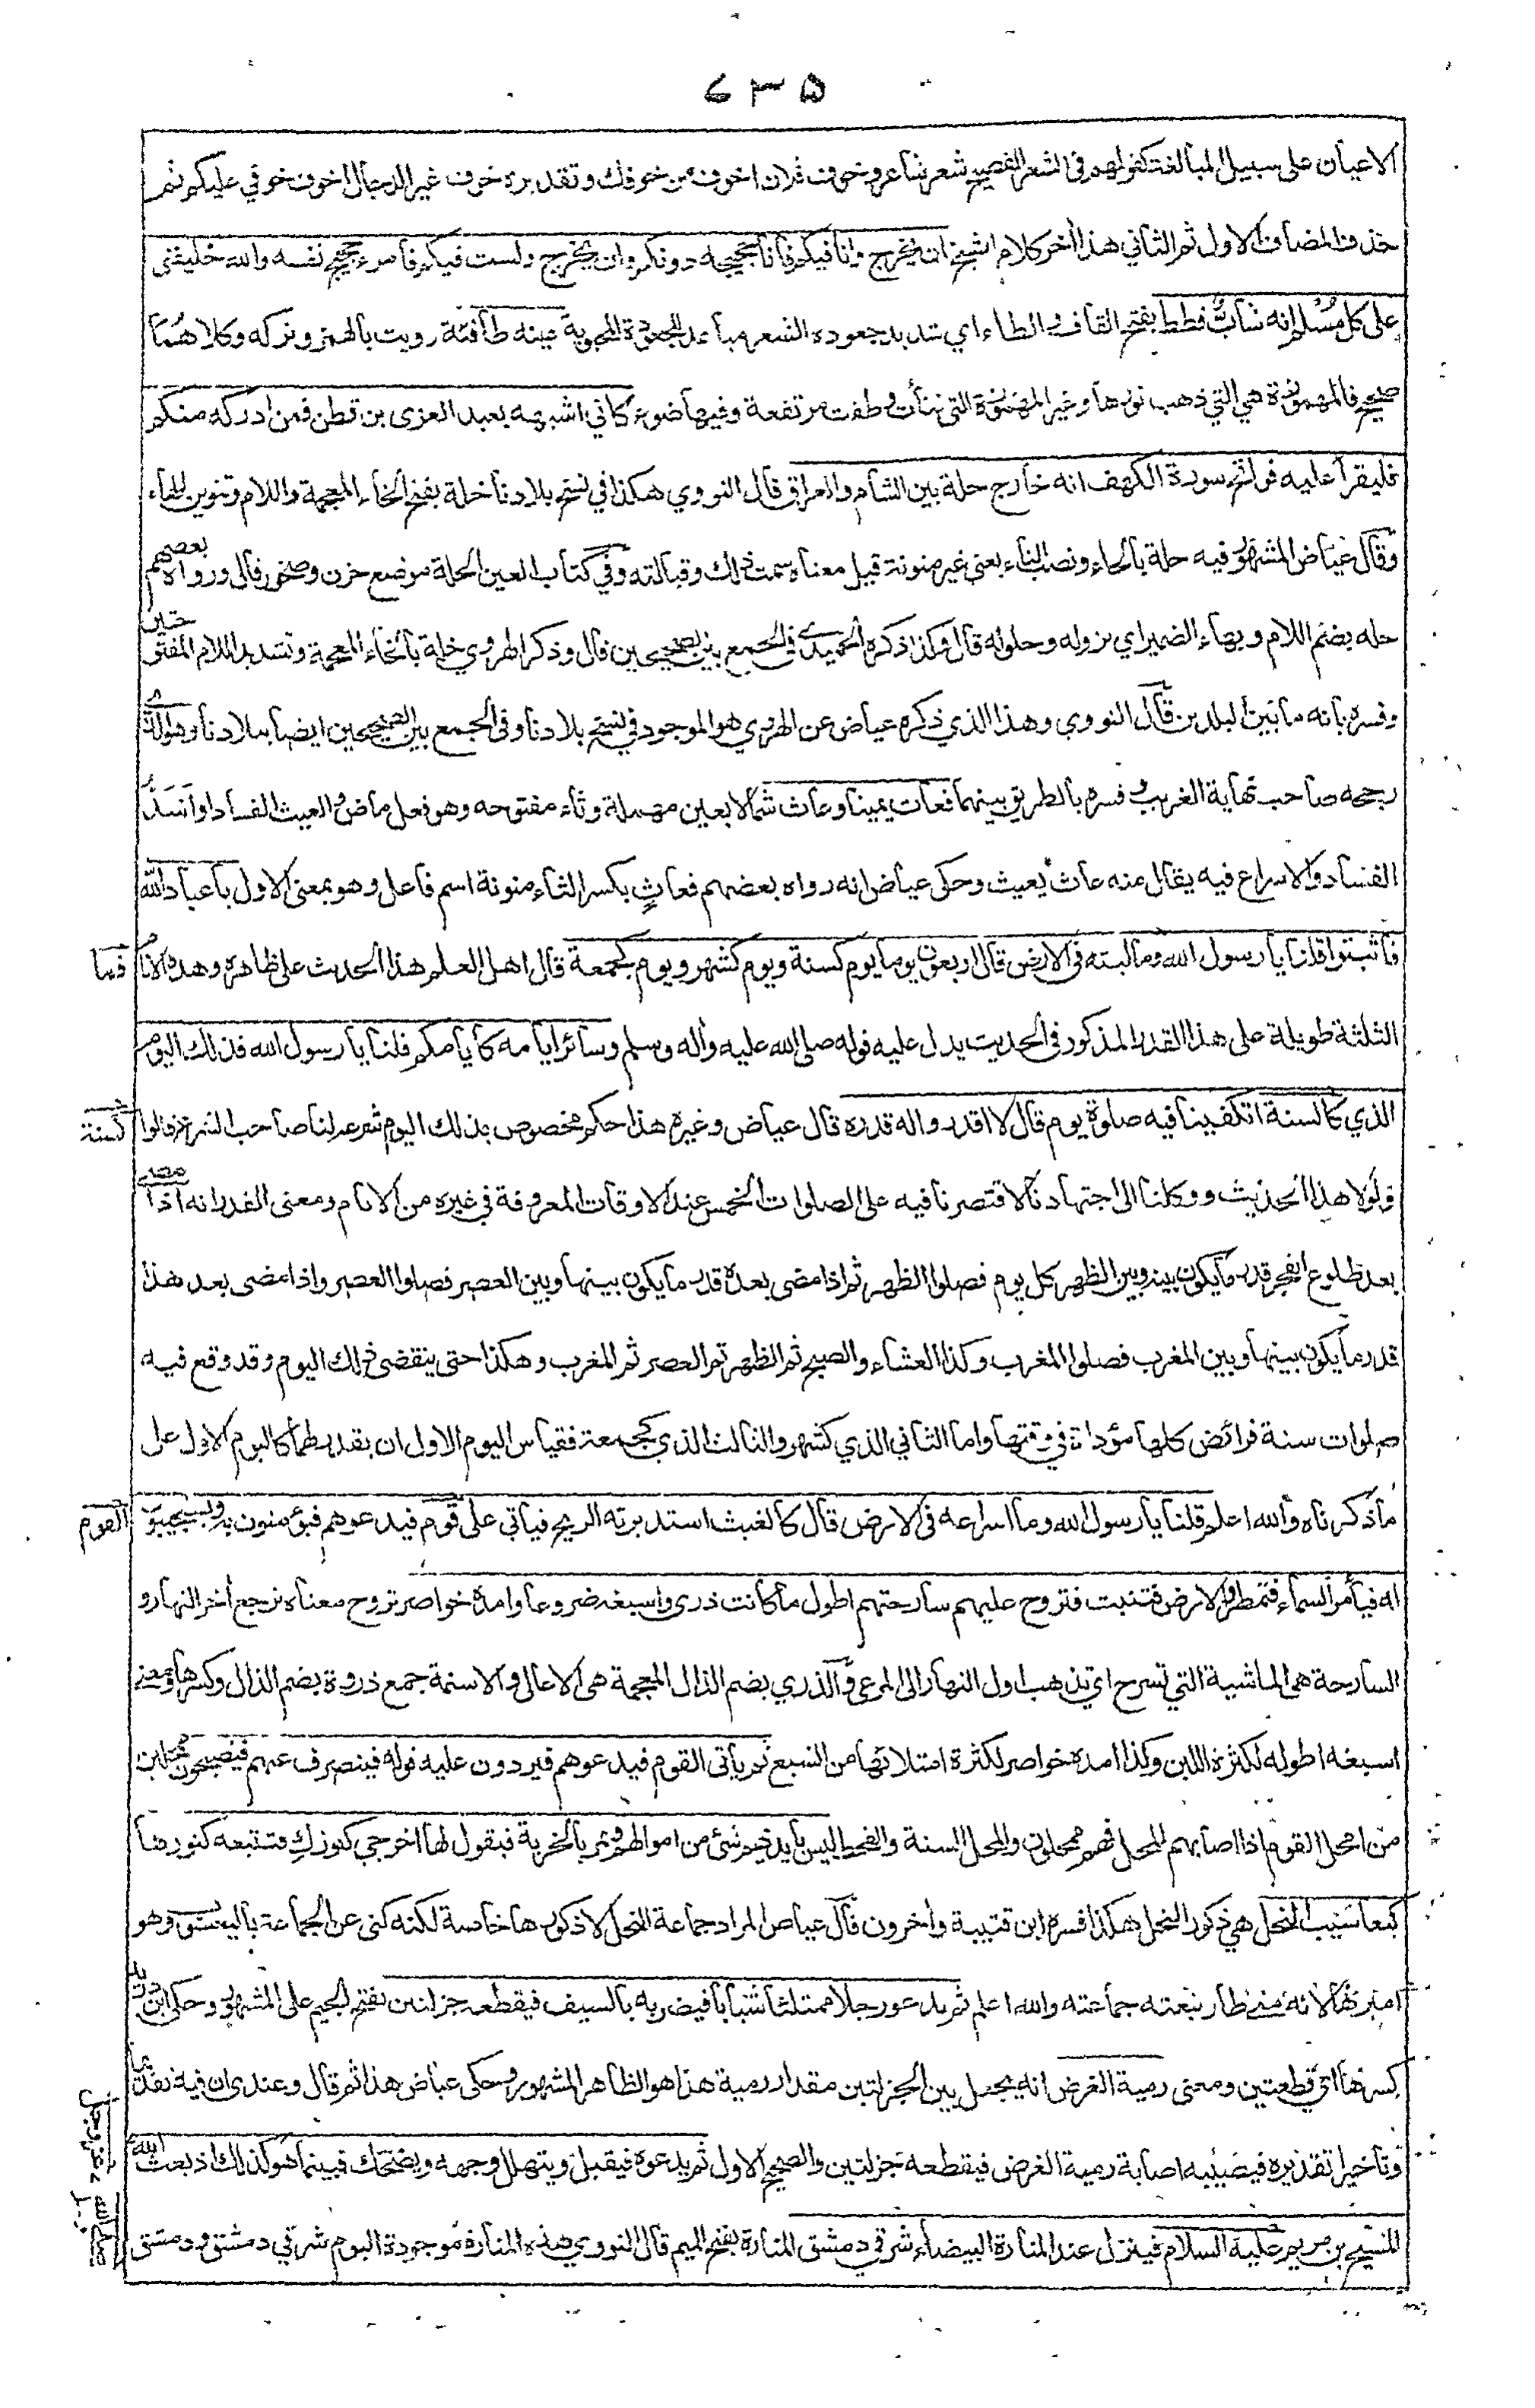 ٦٣٥
الاعيان على سبيل المبالغة كقولهم في الشعر الفصيح شعر شاعر وخوف فلان اخوف من خوفك وتقديره خوف غير الدجال اخوف خوفي عليكم ثم
حذف المضاف الاول ثم الثاني هذا أخر كلام الشيخ ان يخرج وانا فيكم فانا حجيجه دونكم وان يخرج ولست فيكم فامرء حجيج نفسه والله خليفتي
على كل مُسْلم انه شابٌّ قطط بفتح القاف والطاء اي شديد جعودة الشعر مباعد للجعودة المحبوبة عينه طافئة رويت بالهمز وتركه وكلاهُمَا
صحيح فالمهموزة هي التي ذهب نورها وغير المهموزة التي نتأت وطفت مرتفعة وفيها ضوء كاني اشبهه بعبد العزى بن قطن فمن ادركه منكم
فليقرأ عليه فواتح سورة الكهف انه خارج حلة بين الشام والعراق قال النووي هكذا في نسخ بلادنا خلة بفتح الخاء المعجمة واللام وتنوين الهاء
وقال عياض المشهور فيه حلة بالحاء ونصب التاء يعني غير منونة قيل معناه سمت ذلك وقبالته وفي كتاب العين الحلة موضع حزن وصخور قال ورواه بعضهم
حله بضم اللام وبهاء الضمير اي نزوله وحلوله قال وكذا ذكره الحميدي في الجمع بين الصحيحين قال وذكر الهروي خلة بالخاء المعجمة وتشديد اللام المفتوحتين
وفسره بانه ما بين البلدين قال النووي وهذا الذي ذكره عياض عن الهروي هو الموجود في نسخ بلادنا وفي الجمع بين الصحيحين ايضا ببلادنا وهو الذي
رجحه صاحب نهاية الغريب وفسره بالطريق بينهما فعاث يمينا وعاث شمالا بعين مهملة وثاء مفتوحه وهو فعل ماض والعيث الفساد او اَشَدُّ
الفساد والاسراع فيه يقال منه عاث يعيث وحكى عياض انه رواه بعضهم فعاثٍ بكسر الثاء منونة اسم فاعل وهو بمعنى الاول يا عباد الله
فاثبتوا قلنا يا رسول الله وما لبثه في الارض قال اربعون يوما يوم كسنة ويوم كشهر ويوم كجمعة قال اهل العلم هذا الحديث على ظاهره وهذه الايام
الثلثة طويلة على هذا القدر المذكور في الحديث يدل عليه قوله صلى الله عليه وأله وسلم وسائر ايامه كأيامكم قلنا يا رسول الله فذلك اليوم
الذي كالسنة اتكفينا فيه صلوة يوم قال لا اقدروا له قدره قال عياض وغيره هذا حكم مخصوص بذلك اليوم شرعه لنا صاحب الشرع قالوا كسنة
ولولا هذا الحديث ووكلنا الى اجتهادنا لاقتصرنا فيه على الصلوات الخمس عند الاوقات المعروفة في غيره من الايام ومعنى القدر انه اذا مضى
بعد طلوع الفجر قدر ما يكون بينه وبين الظهر كل يوم فصلوا الظهر ثم اذا مضى بعده قدر ما يكون بينها وبين العصر فصلوا العصر واذا مضى بعد هذا
قدر ما يكون بينها وبين المغرب فصلوا المغرب وكذا العشاء والصبح ثم الظهر ثم العصر ثم المغرب وهكذا حتى ينقضي ذلك اليوم وقد وقع فيه
صلوات سنة فرائض كلها مؤداة في وقتها واما الثاني الذي كشهر والثالث الذي كجمعة فقياس اليوم الاول ان يقدر لهما كاليوم الاول على
ما ذكرناه والله اعلم قلنا يا رسول الله وما اسراعه في الارض قال كالغيث استدبرته الريح فيأتي على قوم فيدعوهم فيؤمنون به ويستجيبون القوم
له فيأمر السماء فتمطر والارض فتنبت فتروح عليهم سارحتهم اطول ما كانت ذرى واسبغه ضروعا وامده خواصر تروح معناه ترجع أخر النهار و
السارحة هي الماشية التي تسرح اي تذهب اول النهار الى المرعى والذرى بضم الذال المعجمة هي الاعالي والاسنمة جمع ذروة بضم الذال وكسرها ومعنى
اسبغه اطوله لكثرة اللبن وكذا امده خواصر لكثرة امتلائها من الشبع ثم يأتي القوم فيدعوهم فيردون عليه قوله فينصرف عنهم فيصبحون ممحلين
من امحل القوم اذا اصابهم المحل فهم ممحلون والمحل السنة والقحط ليس بايديهم شئ من اموالهم ويمر بالخربة فيقول لها اخرجي كنوزكِ فتتبعه كنوزها
كيعاسيب النحل هي ذكور النحل هكذا فسره ابن قتيبة وأخرون قال عياض المراد جماعة النحل لا ذكورها خاصة لكنه كنى عن الجماعة باليعسوب وهو
اميرها لانه متى طار تبعته جماعته والله اعلم ثم يدعو رجلا ممتلئا شبابا فيضربه بالسيف فيقطعه جزلتين بفتح الجيم على المشهور وحكى ابن دريد
كسرها اي قطعتين ومعنى رمية الغرض انه يجعل بين الجزلتين مقدار رمية هذا هو الظاهر المشهور وحكى عياض هذا ثم قال وعندي ان فيه تقديما
وتأخيرا تقديره فيصيبه اصابة رمية الغرض فيقطعه جزلتين والصحيح الاول ثم يدعوه فيقبل ويتهلل وجهه ويضحك فبينما هو كذلك اذ بعث الله
المسيح بن مريم عليه السلام فينزل عند المنارة البيضاء شرقي دمشق المنارة بفتح الميم قال النووي هذه المنارة موجودة اليوم شرقي دمشق ودمشق